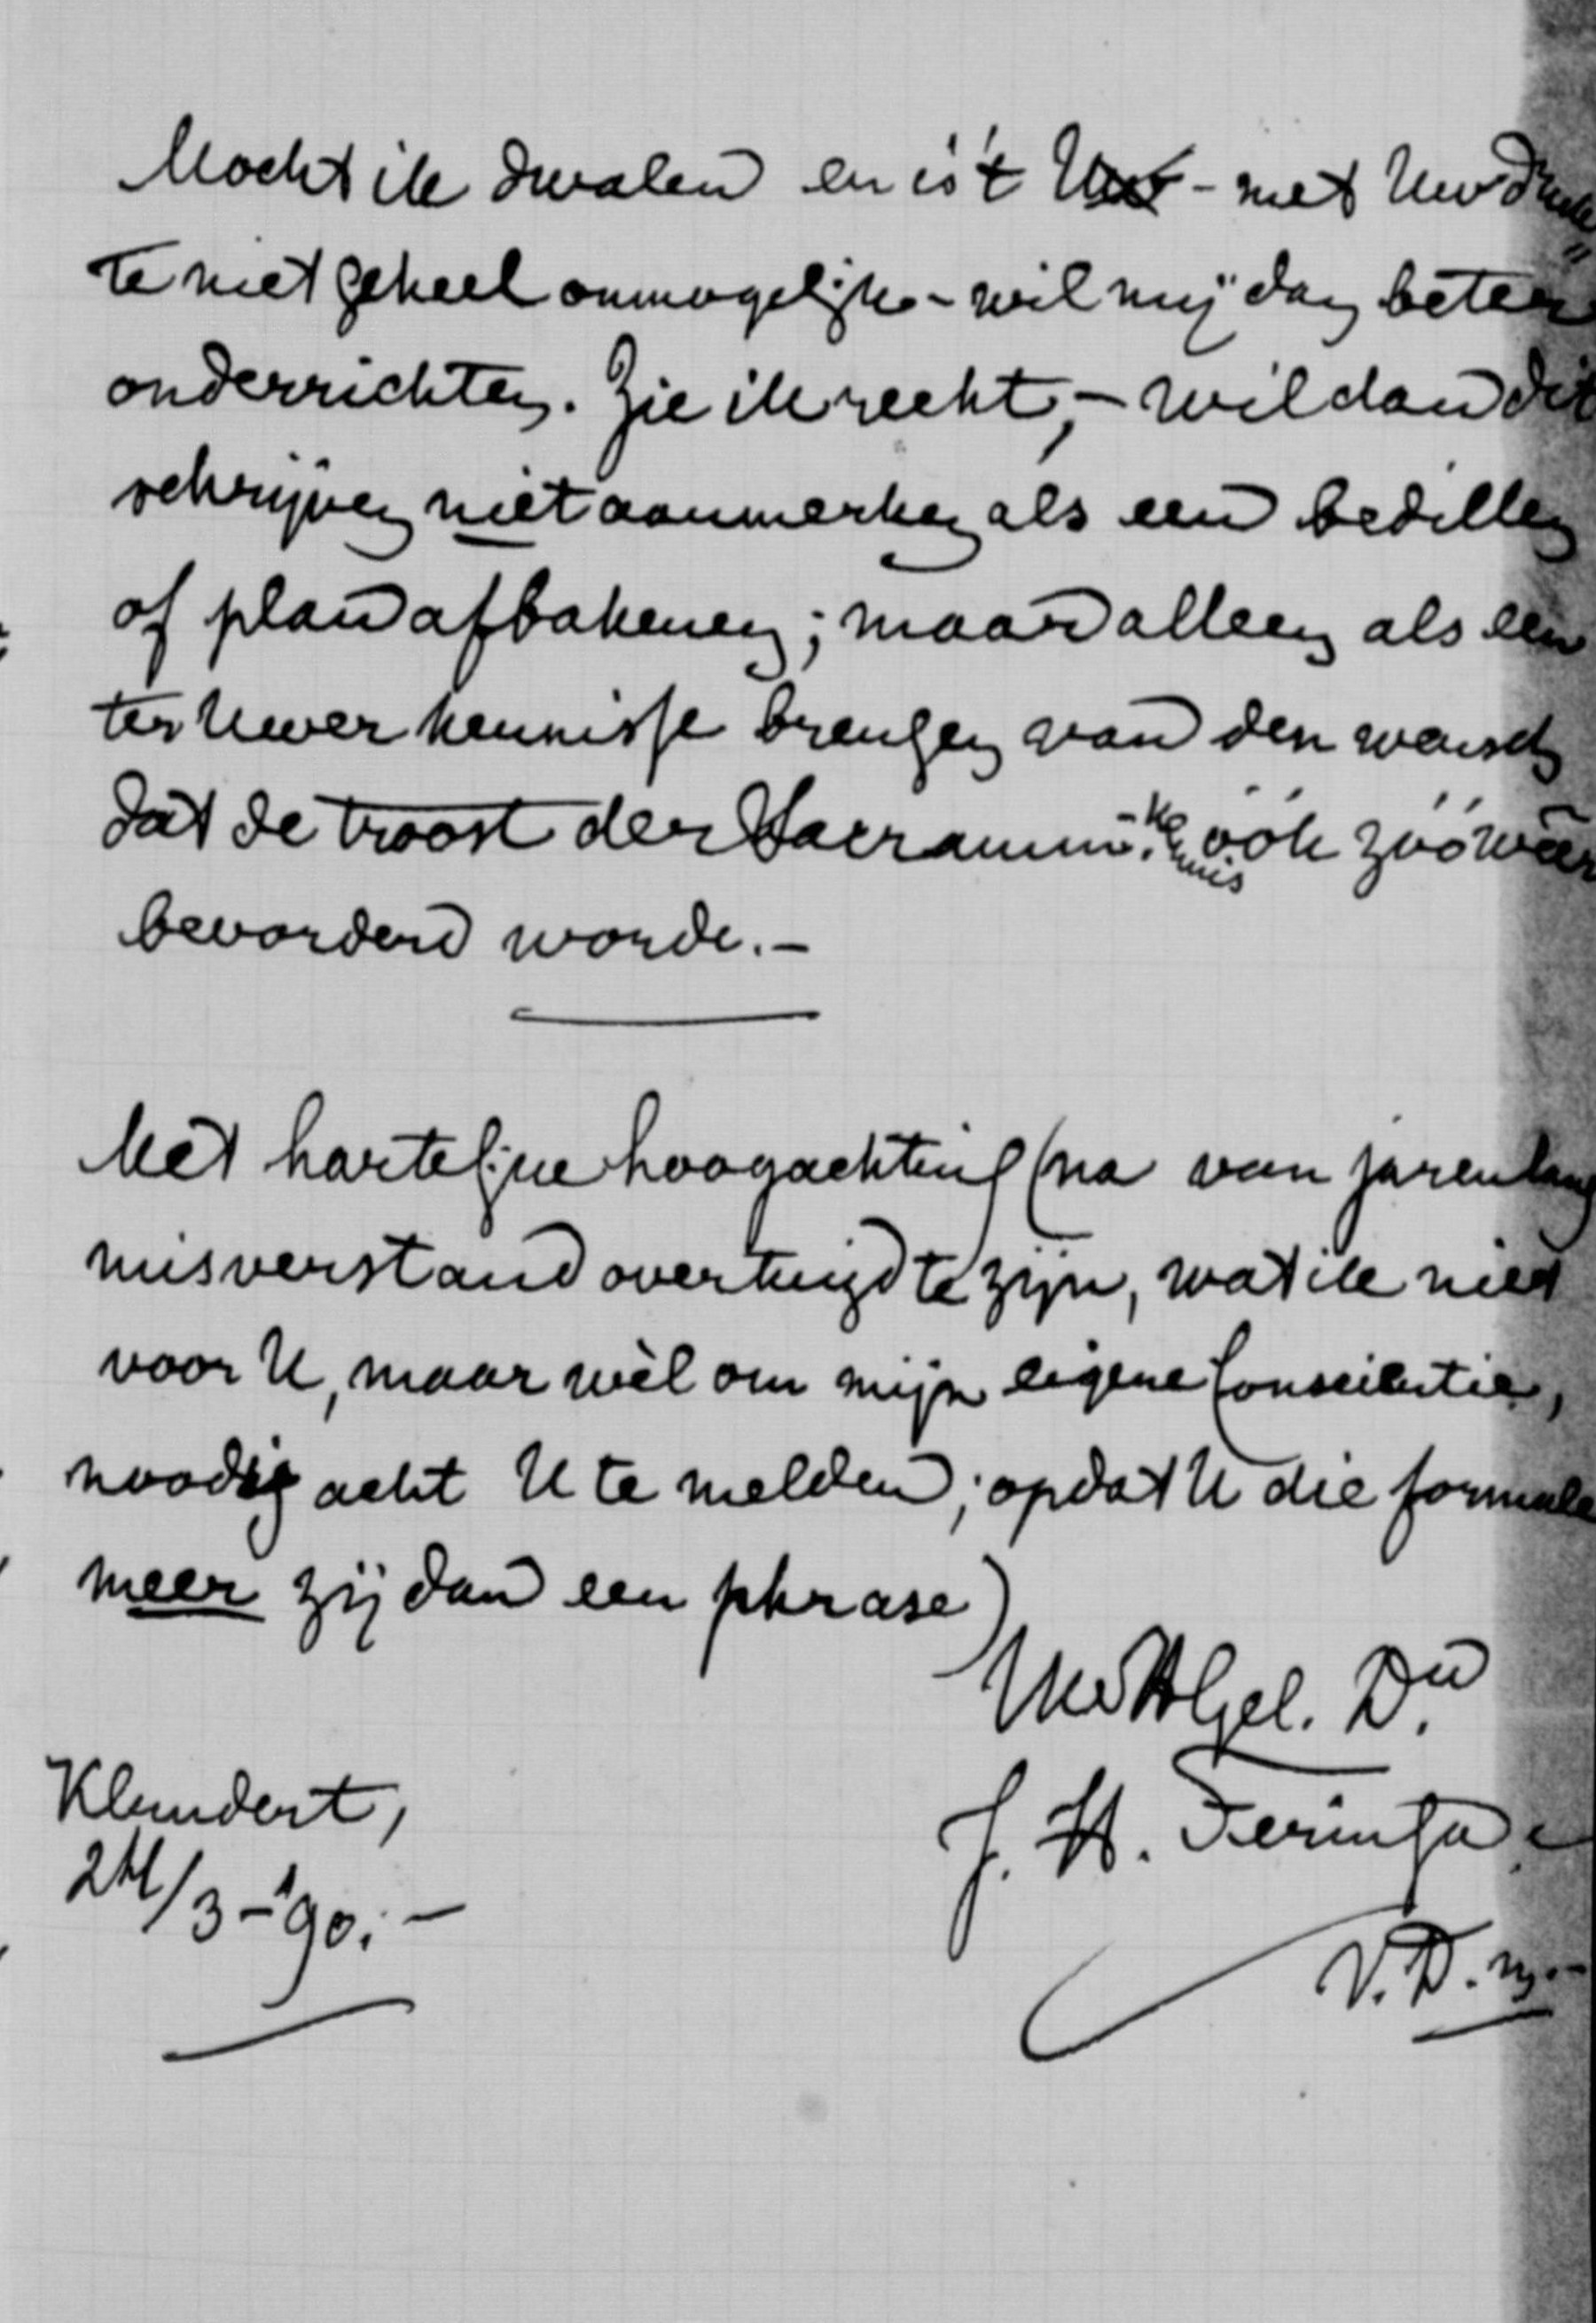 Mocht ik dwalen en is 't U - met Uw
te niet geheel onmogelijk - wil mij dan beter
onderrichten. Zie ik recht, - wil dan dit
schrijven niet aanmerken als een bedillen
of plan afbakenen; maar alleen als een
ter Uwer kennisse brengen van den wensch
dat de troost der kennis óók zóó weer
bevorderd worde. -
Met hartelijke hoogachting (na van jarenlang
misverstand overtuigd te zijn, wat ik niet
voor U, maar wèl om mijn eigene Conscientie,
noodig acht U te melden; opdat U die formule
meer zij dan een phrase)
Uw WelGel. Dw.
J. H. Feringa
V.D.M. -
Klundert,
24/3 - '90. -